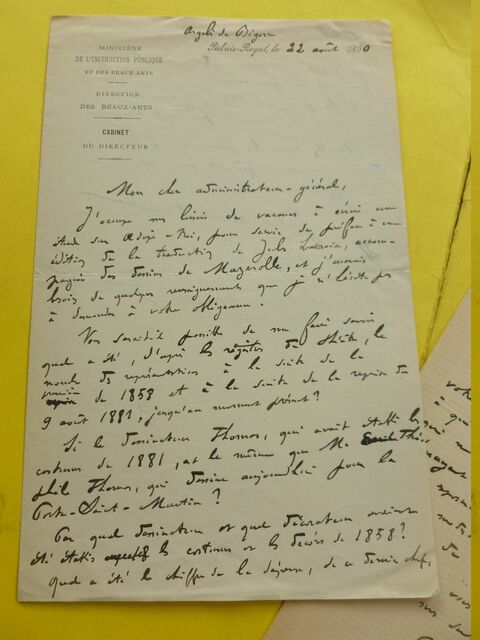 Argelès de Bigorre
Palais-Royal, le 22 août 1890
MINISTÈRE
DE L'INSTRUCTION PUBLIQUE
ET DES BEAUX-ARTS
DIRECTION
DES BEAUX-ARTS
CABINET
DU DIRECTEUR
Mon cher administrateur-général,
J'occupe mes loisirs de vacances à écrire une
étude sur Œdipe-Roi, pour servir de préface à une
édition de la traduction de Jules Lacroix, accom-
pagnée des dessins de Mazerolle, et j'aurais
besoin de quelques renseignements que je n'hésite pas
à demander à votre obligeance.
Vous serait-il possible de me faire savoir
quel a été, d'après les registres du théâtre, le
nombre des représentations à la suite de la
première de 1858 et à la suite de la reprise du
9 août 1881, jusqu'au moment présent?
Si le dessinateur Thomas, qui avait établi les
costumes de 1881, est le même que M. Théo-
phile Thomas, qui dessine aujourd'hui pour la
Porte-Saint-Martin?
Par quel dessinateur et quel décorateur avaient
été établis les costumes et les décors de 1858?
Quel a été le chiffre de la dépense, de ce dernier chef,